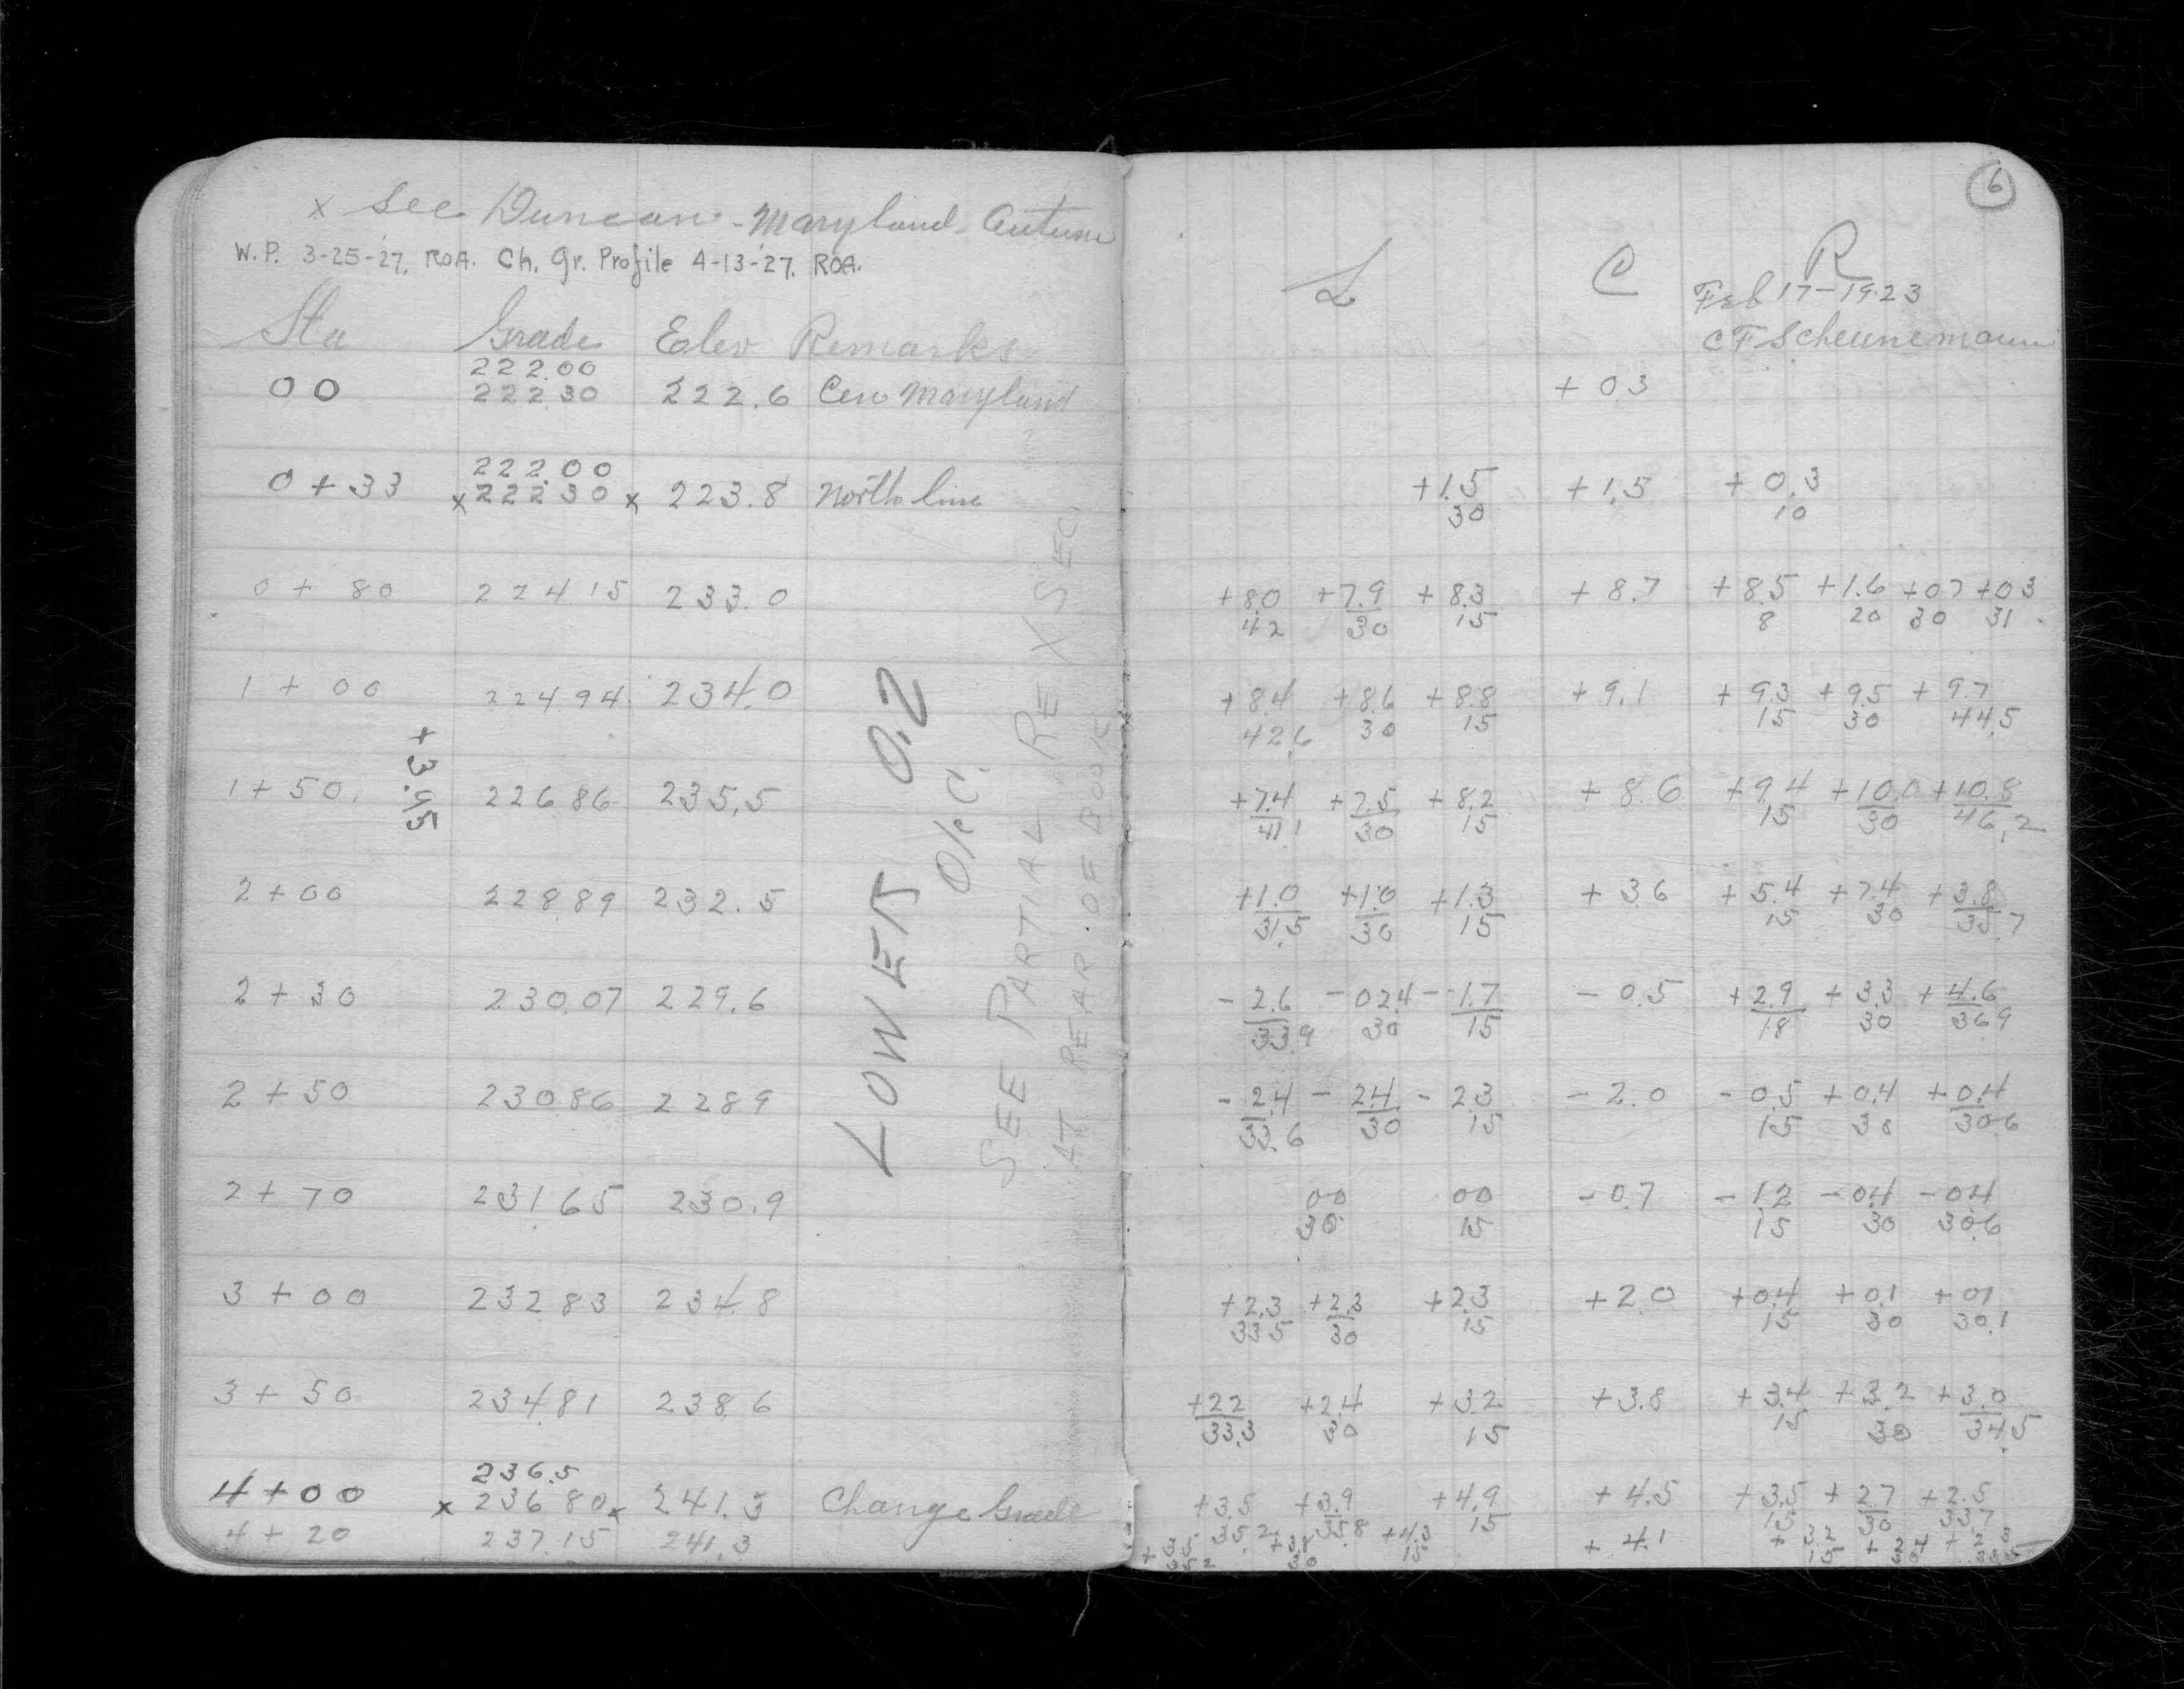 x See Duncan - Maryland - Autumn
W.P. 3-25-27, ROA. Ch. Gr. Profile 4-13-27. ROA.
Sta Grade Elev Remarks
222.00
00 222 30 222.6 Cen Maryland
222.00
0 + 33 x 222 30 x 223.8 North line
0 + 80 224.15 233.0
1 + 00 224.94 234.0
+3.95
1 + 50. 226 86 235.5
2 + 00 228.89 232.5
2 + 30 230.07 229.6
2 + 50 230.86 228 9
2 + 70 231.65 230.9
3 + 00 232 83 234.8
3 + 50 234.81 238.6
236.5
4 + 00 x 236 80 x 241.3 Change Grade
4 + 20 237.15 241.3
LOWER 0.2
O.K.C.
SEE PARTIAL RE X SEC.
AT REAR OF BOOK
6
L C R
Feb 17-1923
CF Scheunemann
+ 0.3
+1.5 + 1.5 + 0.3
30 10
+8.0 +7.9 +8.3 + 8.7 +8.5 +1.6 +0.7 +0.3
42 30 15 8 20 30 31
+8.4 +8.6 +8.8 + 9.1 + 9.3 + 9.5 + 9.7
42.6 30 15 15 30 44.5
+7.4 +7.5 +8.2 + 8.6 +9.4 +10.0 +10.8
41.1 30 15 15 30 46.2
+1.0 +1.0 +1.3 + 3.6 + 5.4 +7.4 +3.8
31.5 30 15 15 30 35.7
- 2.6 - 02.4 - 1.7 - 0.5 +2.9 + 3.3 + 4.6
33.9 30 15 18 30 36 9
- 2.4 - 2.4 - 2.3 - 2.0 - 0.5 + 0.4 + 0.4
33.6 30 15 15 30 30.6
00 00 - 0.7 - 1.2 - 0.4 - 0.4
30 15 15 30 30.6
+2.3 +2.3 +2.3 + 2.0 +0.4 + 0.1 + 01
33 5 30 15 15 30 30.1
+2.2 +2.4 + 3.2 + 3.8 + 3.4 + 3.2 + 3.0
33.3 30 15 15 30 34.5
+3.8 +3.9 +4.9 + 4.5 + 3.5 + 2.7 + 2.5
35.2 35.8 15 15 30 33.7
+ 3.5 + 3.8 + 4.3 + 4.1 + 3.2 + 2.4 + 2.3
35 2 30 15 15 30